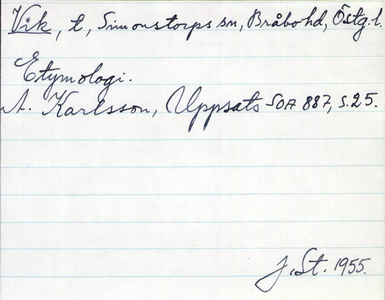 Vik, t, Simonstorps sn, Bråbo hd, Östg. l.
Etymologi.
A. Karlsson, Uppsats SOA 887, s. 25.
J. St. 1955.